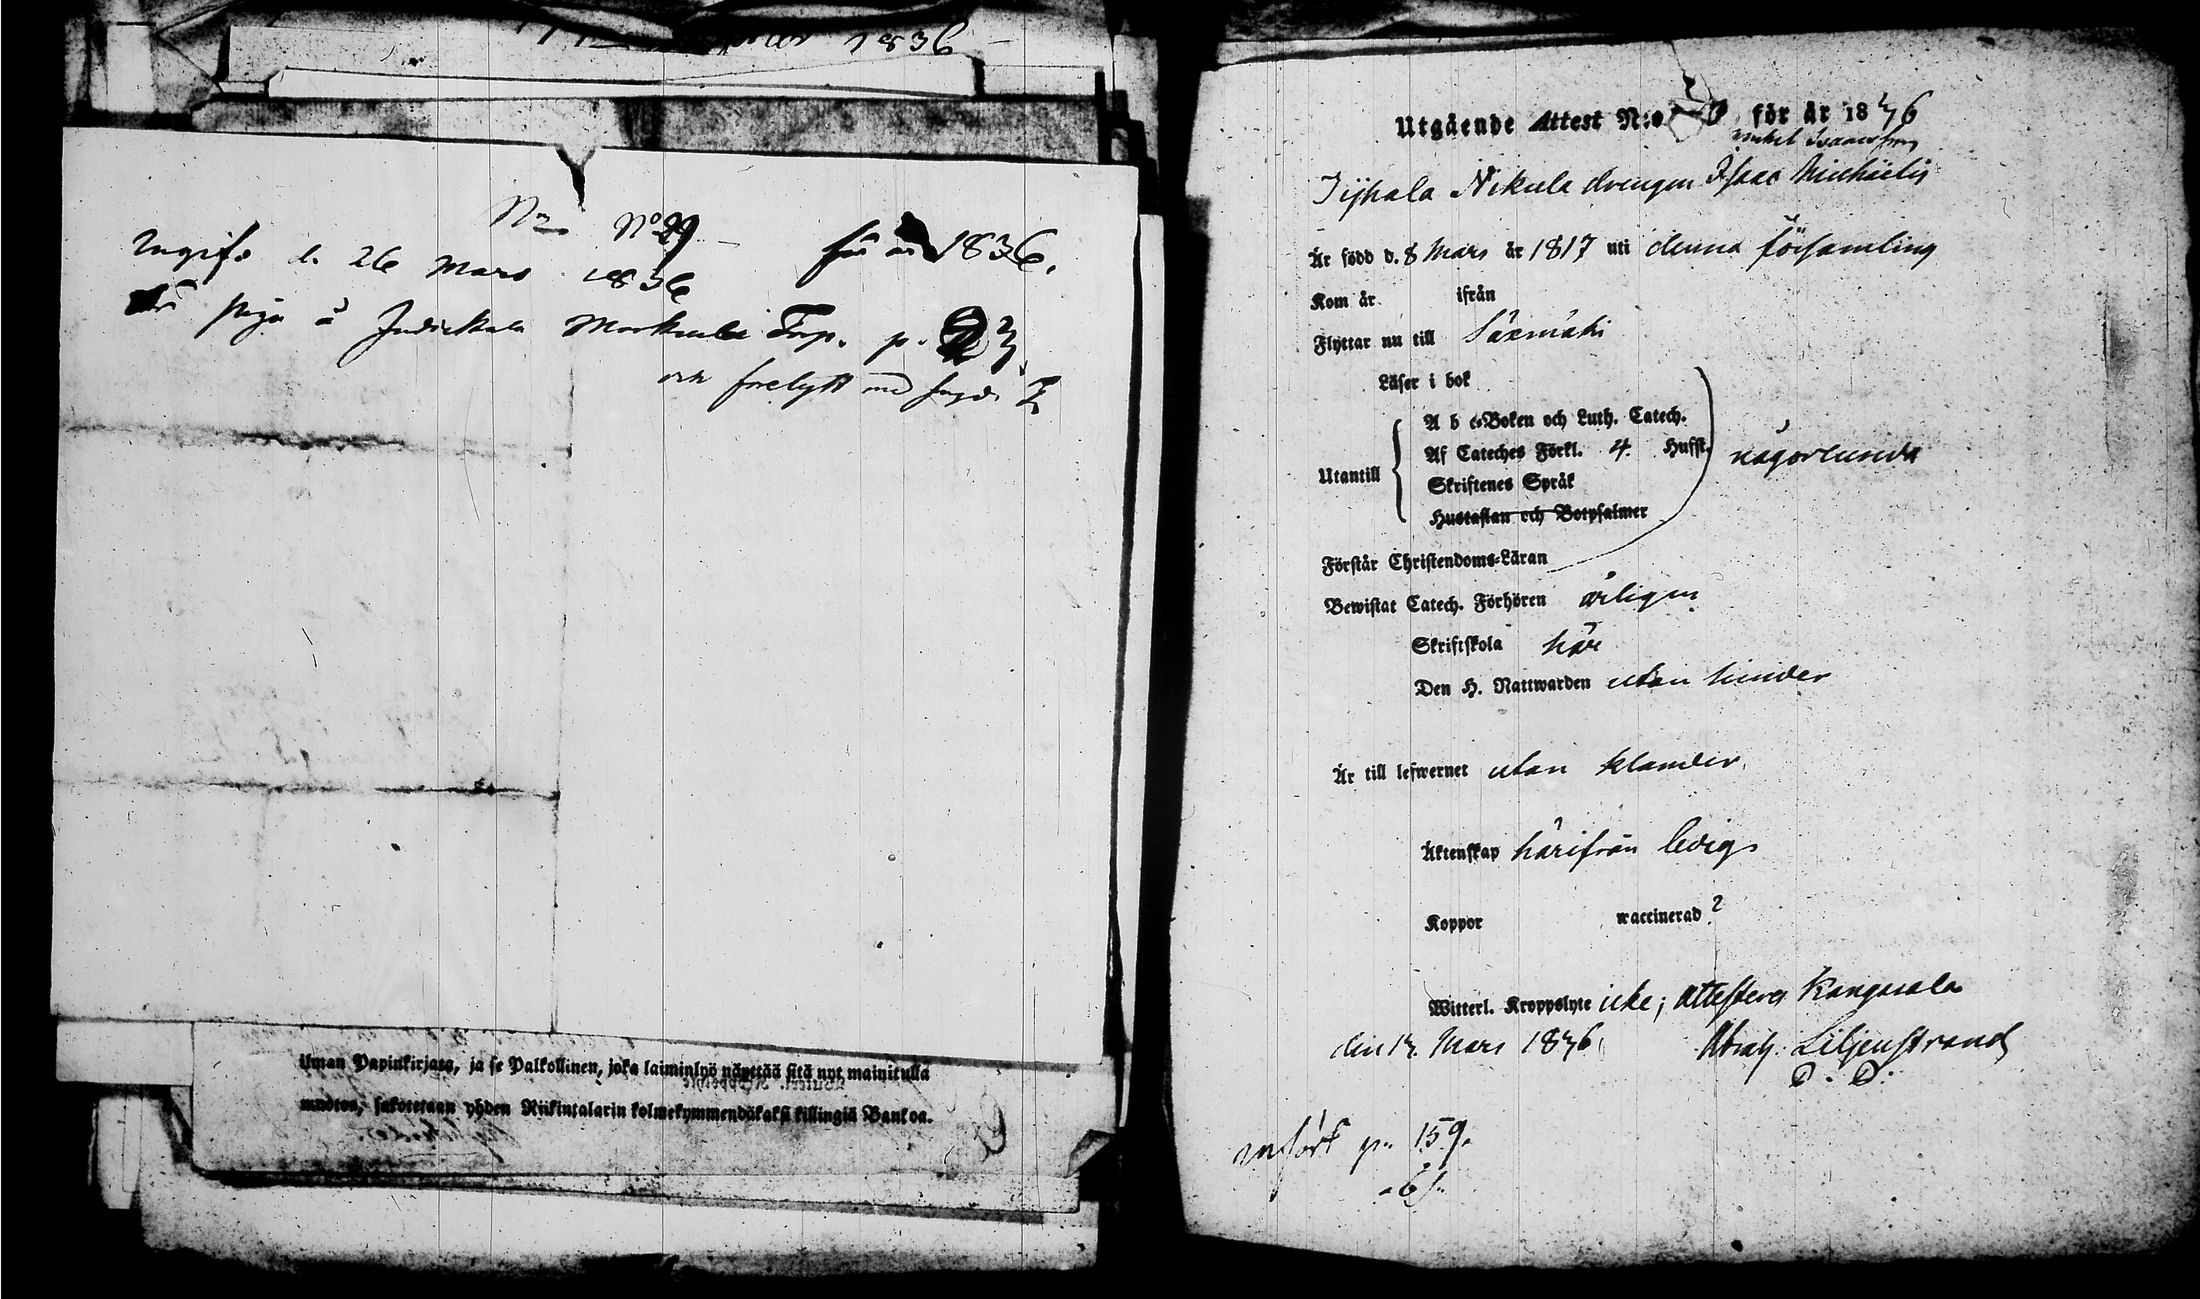 1836
No No 29 för år 1836.
Ingifv. d. 26 Mars 1836
piga å Markula Torp. p.
och
ilman Papinkirjata, ja se Palkollinen, joka laiminlyö näyttää sitä nyt mainitulla
muotoa, sakotetaan yhden Riikintalarin kolmekymmendäkaksi killingiä Bankoa.
Utgående Attest N:o för år 1836
Michel Isaacsson
Nikula drengen Isaac Michaelis
Är född d. 8 Mars år 1817 uti denna församling
Kom år ifrån
Flyttar nu till Säxmäki
Läser i bok
A b c-Boken och Luth. Catech.
Utantill Af Cateches Förkl. 4. Hufst. någorlunda
Skriftenes Språk
Hustaflan och Botpsalmer
Förstår Christendoms-Läran
Bewistat Catech. Förhören årligen
Skriftskola här
Den H. Nattwarden utan hinder
Är till lefwernet utan klander.
Äktenskap härifrån ledig.
Koppor waccinerad ?
Witterl. Kroppslyte icke; attesterar Kangasala
den 17. Mars 1836. Abrah. Liljenstrand
D. D.
Infört p. 159.